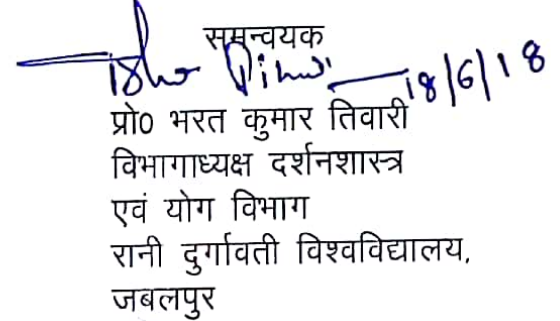 समन्वयक
18/6/18
प्रो० भरत कुमार तिवारी
विभागाध्यक्ष दर्शनशास्त्र
एवं योग विभाग
रानी दुर्गावती विश्वविद्यालय,
जबलपुर